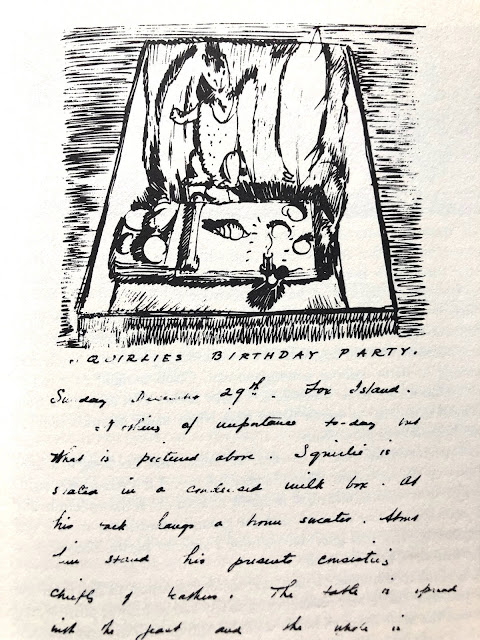 QUIRLIES BIRTHDAY PARTY.
Sunday December 29th. Fox Island.
Nothing of importance to-day but
What is pictured above. Squirlie is
seated in a condensed milk box. At
his back hangs a brown sweater. About
him stand his presents consisting
chiefly of feathers. The table is spread
with the feast and the whole is